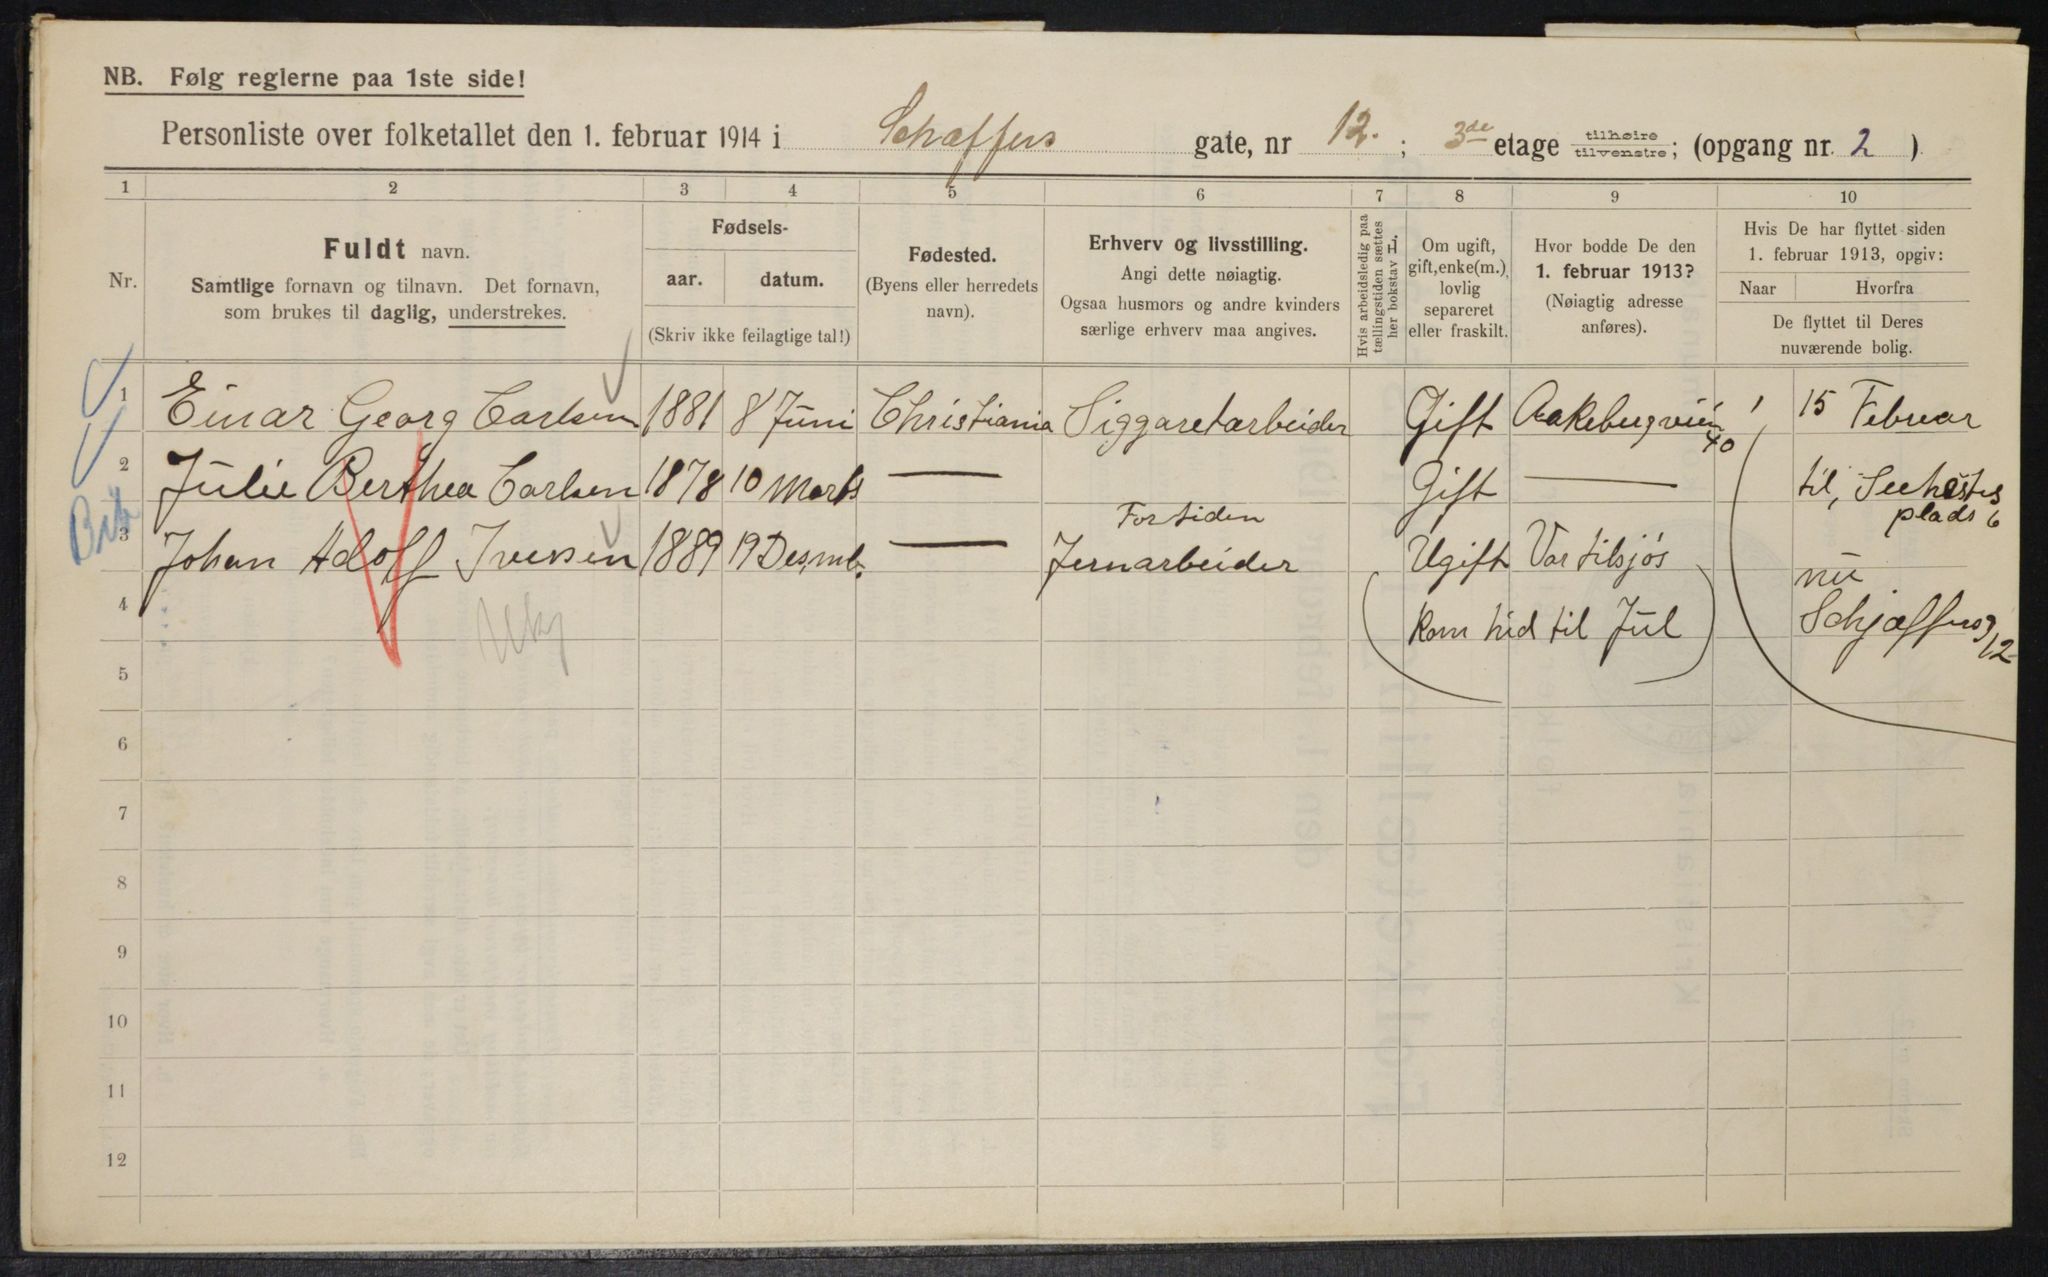 NB. Følg reglerne paa 1ste side!
Personliste over folketallet den 1. februar 1914 i Schæffers gate, nr 12. ; 3de etage tilhøire tilvenstre; (opgang nr. 2 )
1 2 3 4 5 6 7 8 9 10
Nr.
Fuldt navn.
Samtlige fornavn og tilnavn. Det fornavn,
som brukes til daglig, understrekes.
Fødsels-
aar. datum.
(Skriv ikke feilagtige tal!)
Fødested.
(Byens eller herredets
navn).
Erhverv og livsstilling.
Angi dette nøiagtig.
Ogsaa husmors og andre kvinders
særlige erhverv maa angives.
Hvis arbeidsledig paa
tællingstiden sættes
her bokstav L.
Om ugift,
gift, enke(m.),
lovlig
separeret
eller fraskilt.
Hvor bodde De den
1. februar 1913?
(Nøiagtig adresse
anføres).
Hvis De har flyttet siden
1. februar 1913, opgiv:
Naar Hvorfra
De flyttet til Deres
nuværende bolig.
1 Einar Georg Carlsen 1881 8 Juni Christiania Siggaretarbeider Gift Aakebergveien 40 15 Februar
2 Julie Berthea Carlsen 1878 10 Marts — Gift — til, Seehustes
plads 6
3 Johan Adolf Iversen 1889 19 Desmb. — Fortiden
Jernarbeider Ugift Var tilsjøs nu
4 (kom hid til Jul) Schjæffersg 12
5
6
7
8
9
10
11
12